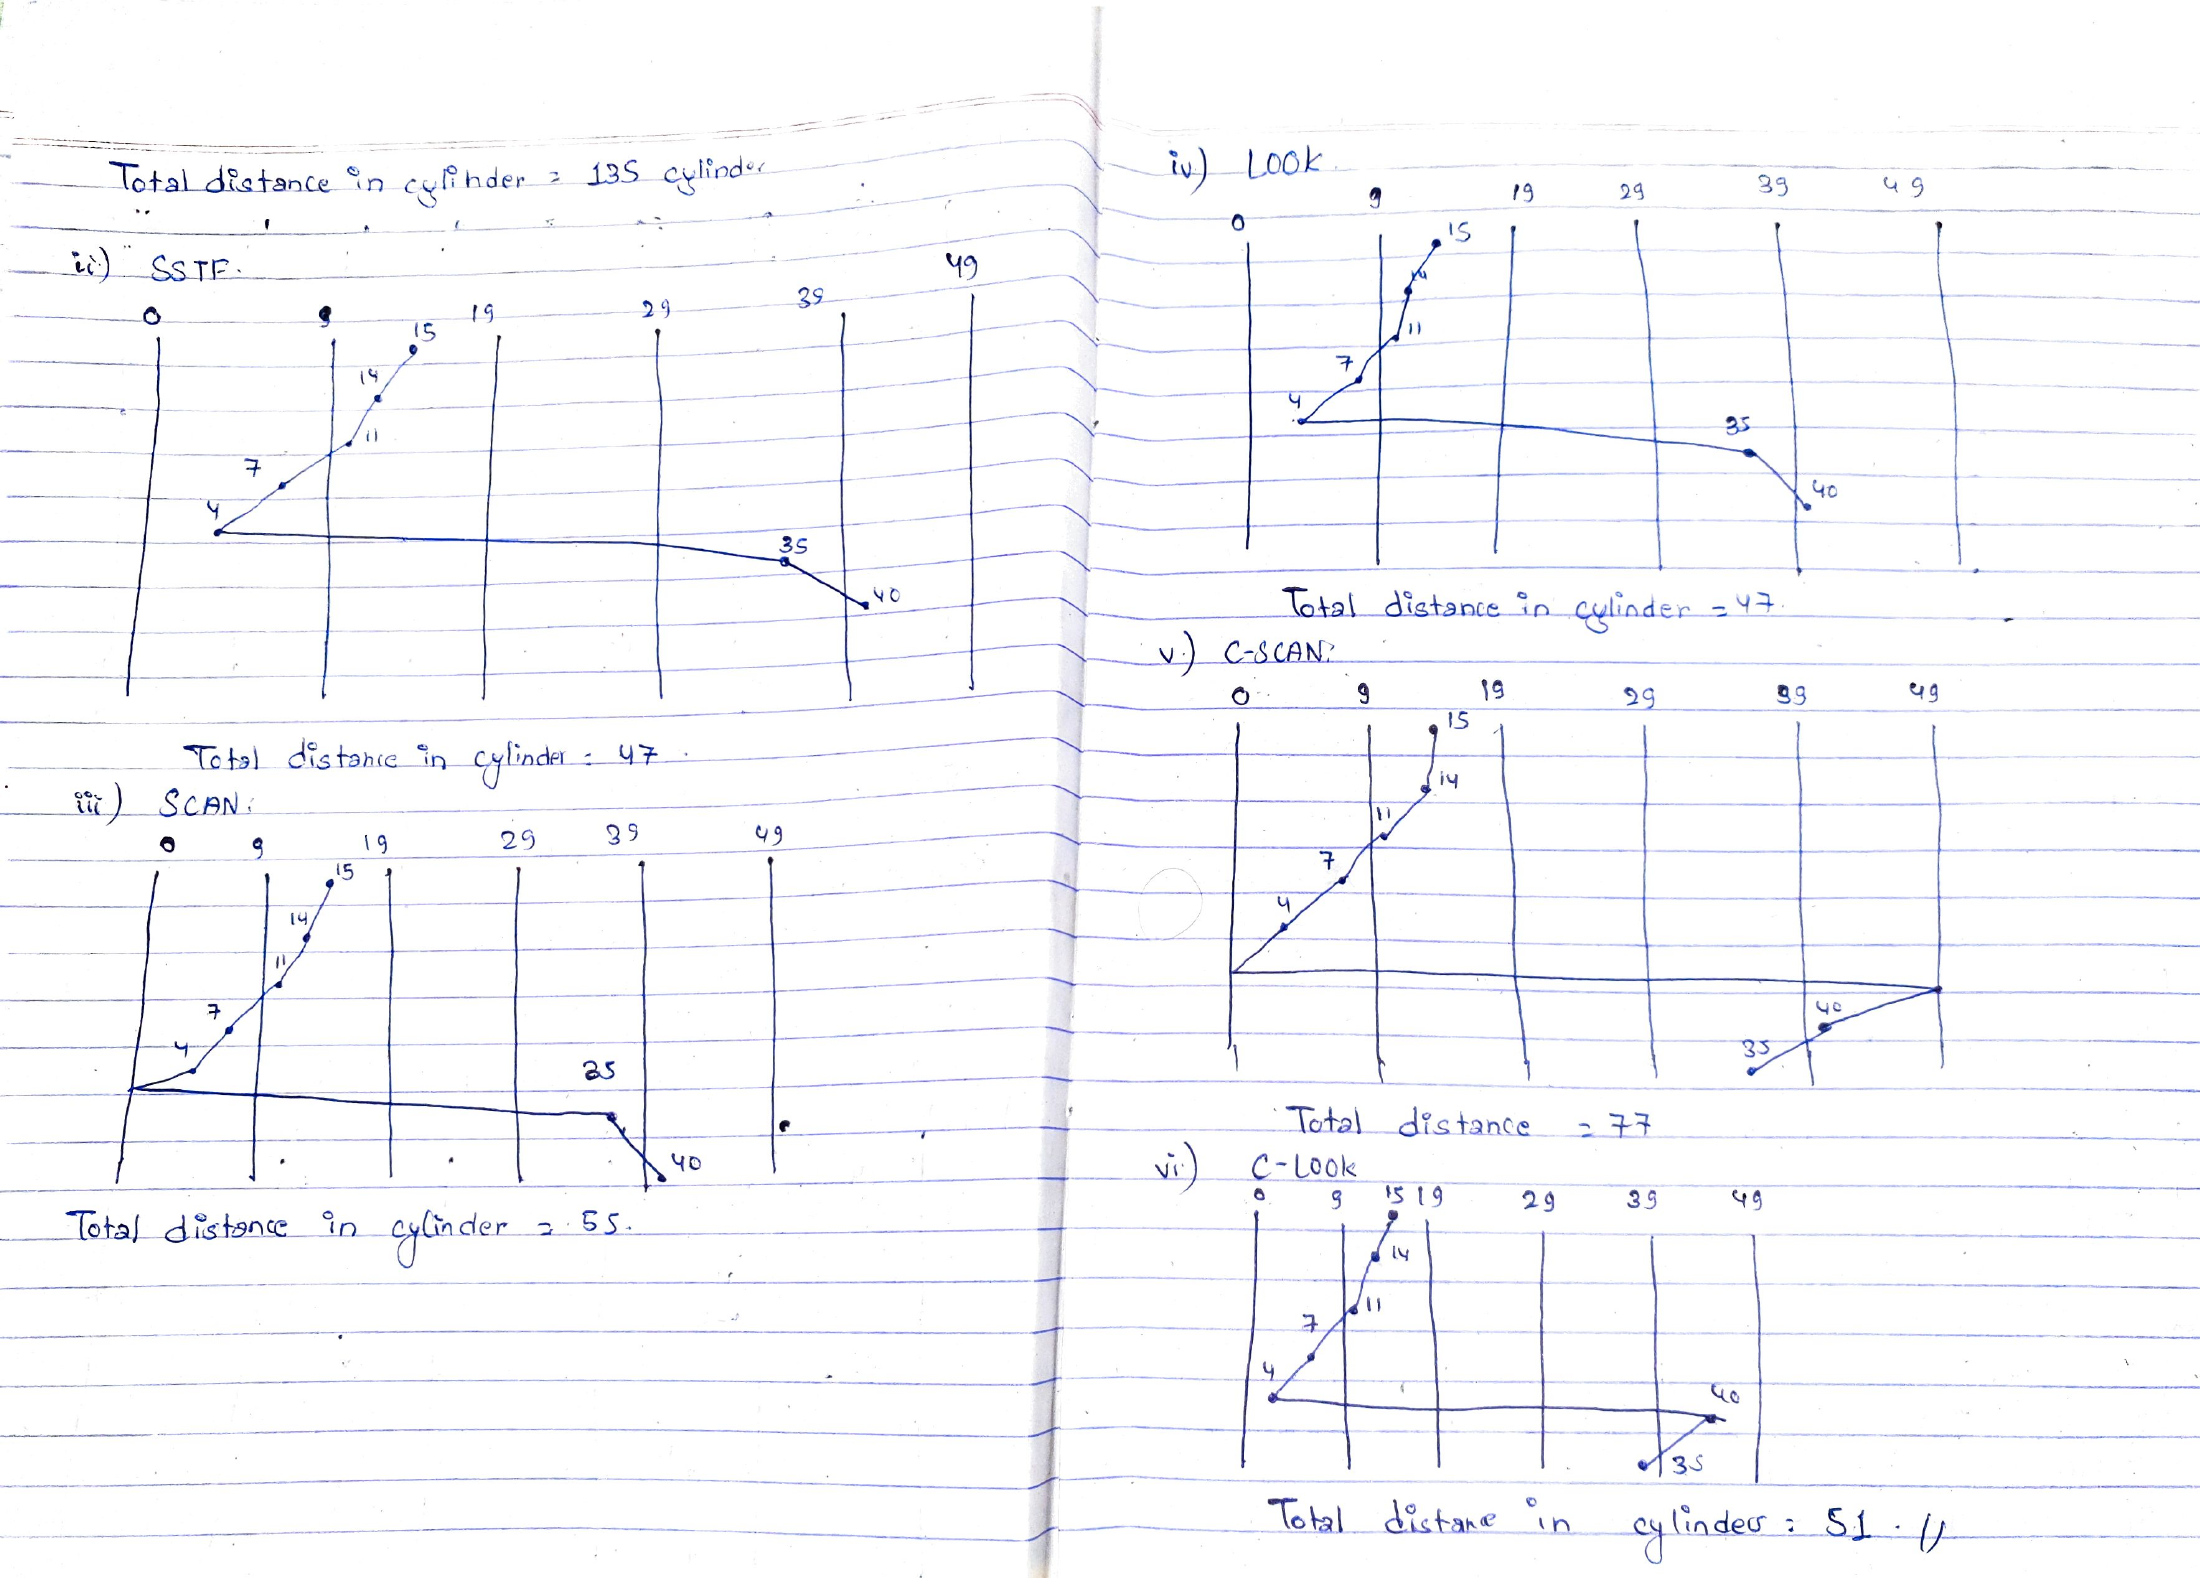 Total distance in cylinder = 135 cylinder
ii) SSTF.
0 9 19 29 39 49
15
14
11
7
4
35
40
Total distance in cylinder = 47.
iii) SCAN:
0 9 19 29 39 49
15
14
11
7
4
35
40
Total distance in cylinder = 55.
iv) LOOK.
0 9 19 29 39 49
15
14
11
7
4
35
40
Total distance in cylinder = 47.
v.) C-SCAN:
0 9 19 29 39 49
15
14
11
7
4
40
35
Total distance = 77
vi.) C-LOOK
0 9 15 19 29 39 49
14
11
7
4
40
35
Total distance in cylinders = 51.